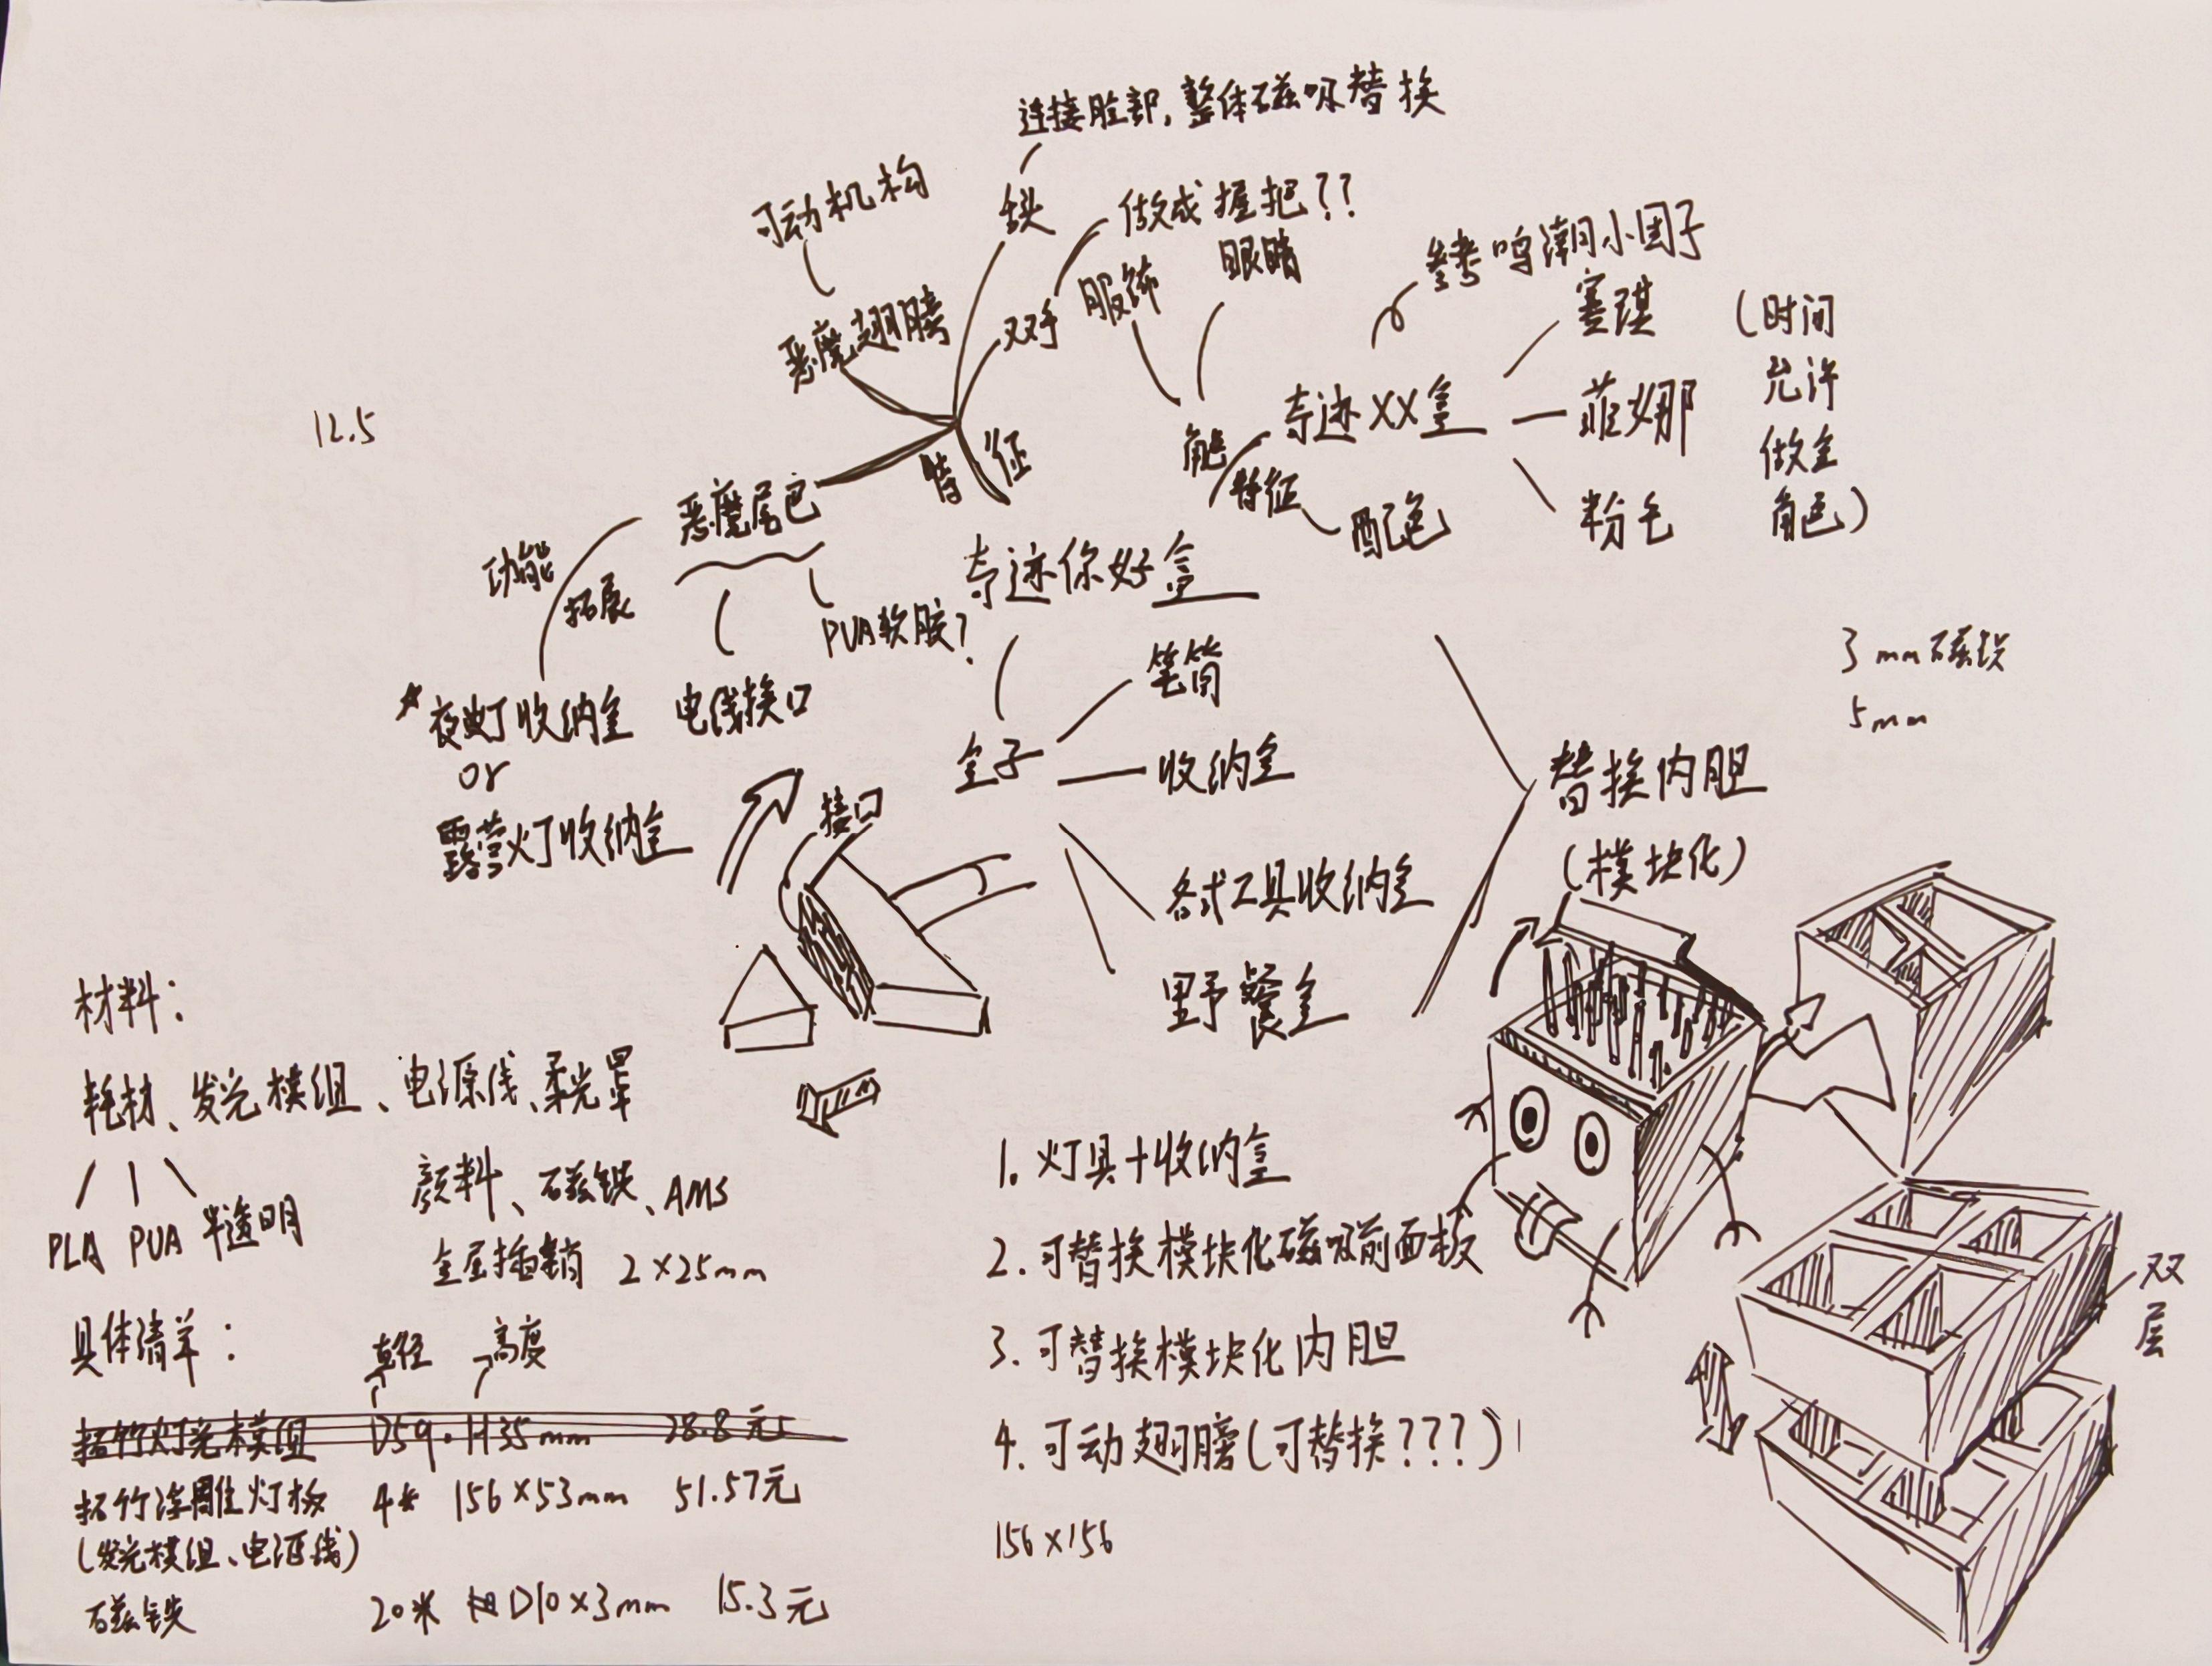 连接脸部,整体磁吸替换
可动机构
做成握把??
眼睛
服饰
双手
恶魔翅膀
参考鸣潮小团子
赛琪
(时间
允许
做全
角色)
12.5
奇迹XX盒
菲娜
特征
角色
特征
配色
粉毛
恶魔尾巴
功能
拓展
奇迹你好盒
PUA软胶?
3mm磁铁
5mm
笔筒
★夜灯收纳盒
or
露营灯收纳盒
电线接口
盒子
收纳盒
替换内胆
(模块化)
接口
各式工具收纳盒
野餐盒
材料:
耗材、发光模组、电源线、柔光罩
颜料、磁铁、AMS
PLA PUA 半透明
金属插销 2×25mm
1. 灯具+收纳盒
2. 可替换模块化磁吸前面板
3. 可替换模块化内胆
4. 可动翅膀(可替换???)
156×156
双
层
具体清单:
直径 高度
拓竹灯光模组 D59·H35mm 28.8元
拓竹浮雕灯板 4* 156×53mm 51.57元
(发光模组、电源线)
磁铁 20米 D10×3mm 15.3元